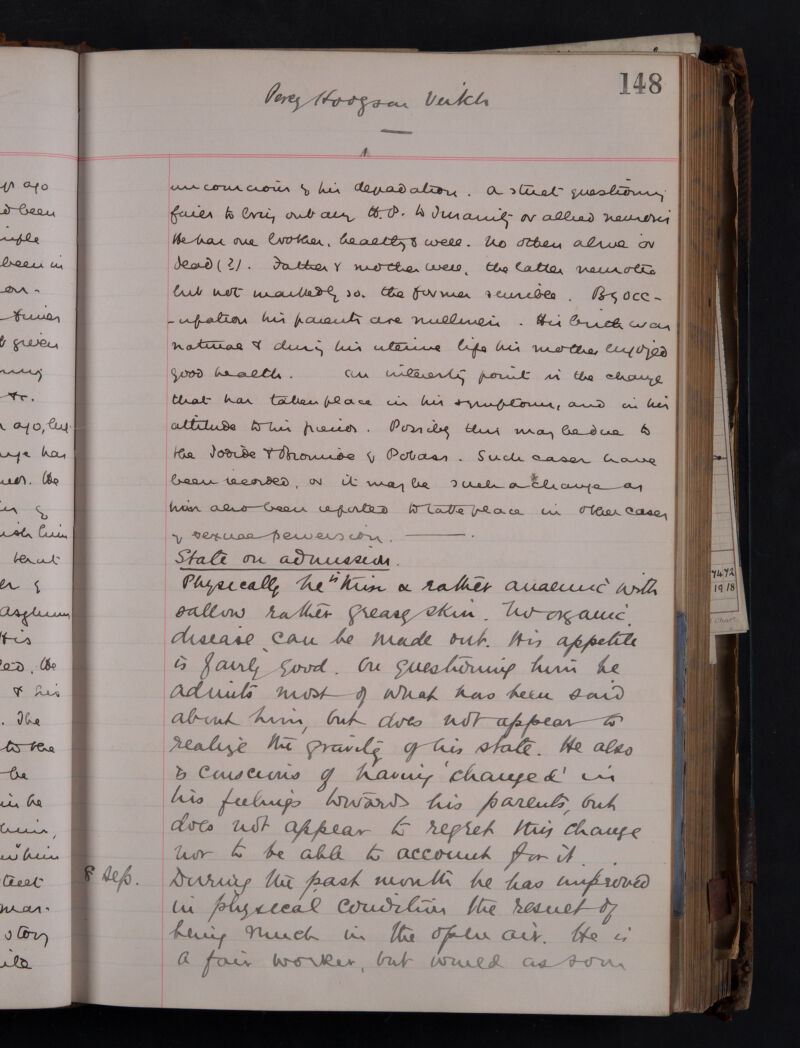 148
Percy Hodgson Veitch
unconscious of his depravation. A strict questioning
fails to bring out any H.P. to Insanity or allied neurosis
He has one brother, healthy & well. No others alive or
dead (?). Father & mother well, the latter neurotic
but not markedly so. The former sensible. By occ-
-upation his parents are milliners. His birth was
natural & during his uterine life his mother enjoyed
good health. An interesting point is the change
that has taken place in his symptoms, and in his
attitude to his friends. Possibly this may be due to
the Iodide & Bromide of Potass. Such cases have
been recorded, or it may be such a change as
him also been reported to take place in other cases
of sexual perversion.
State on admission.
Physically he is thin & rather anaemic with
sallow rather greasy skin. No organic
disease can be made out. His appetite
is fairly good. On questioning him he
admits most of what has been said
about him, but does not appear to
realize the gravity of his state. He also
is conscious of having 'changed' in
his feelings towards his parents, but
does not appear to regret this change
nor to be able to account for it.
8 Sep. During the past month he has improved
in physical condition the result of
being much in the open air. He is
a fair worker, but would as soon
ago
been
been in
on -
given
&c.
ago, but
has
He
him
that
asylum
His
He
& his
. The
to the
be
in he
him,
him
story
7472
1918